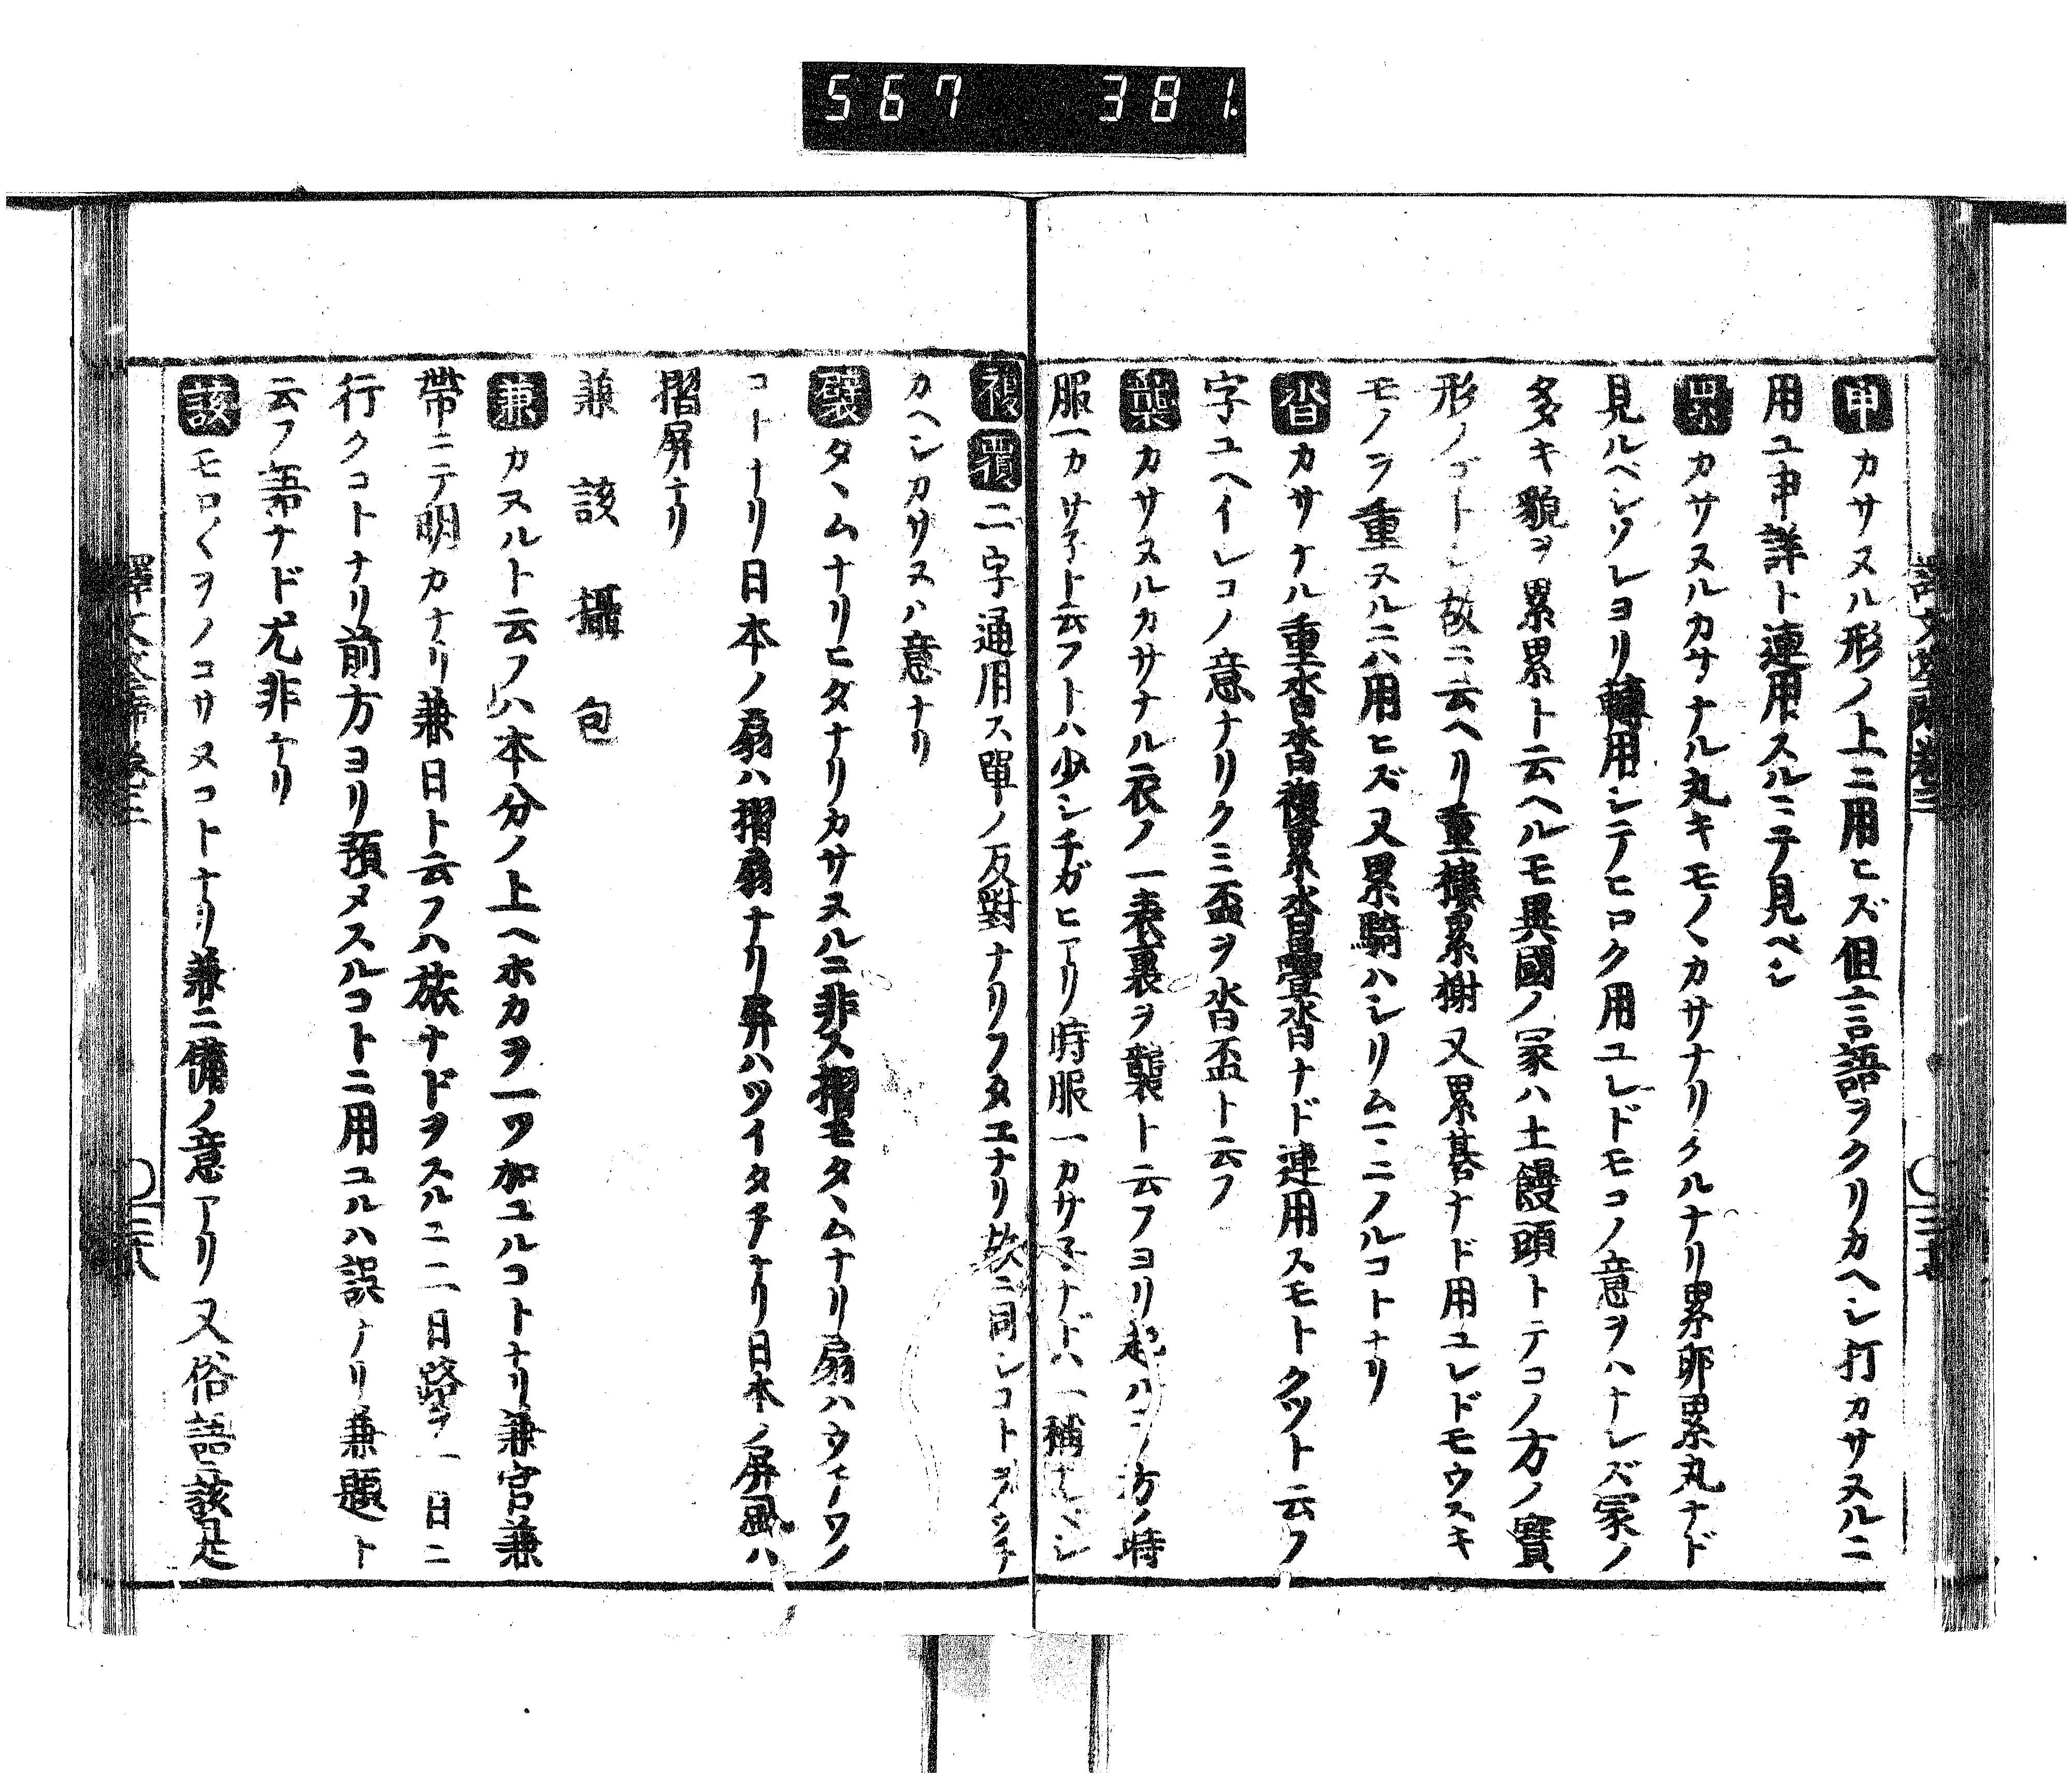 567 381
申 カサヌル形ノ上ニ用ヒズ但言語ヲクリカヘシ打カサヌルニ
用ユ申詳ト連用スルニテ見ベシ
累 カサヌルカサナル丸キモノヽカサナリクルナリ累卵累丸ナド
見ルベシソレヨリ轉用シテヒロク用ユレドモコノ意ヲハナレズ冢ノ
多キ貌ヲ累累ト云ヘルモ異國ノ冢ハ土饅頭トテコノ方ノ寳
形ノゴトシ故ニ云ヘリ重樓累榭又累碁ナド用ユレドモウスキ
モノヲ重ヌルニハ用ヒズ又累騎ハシリムマニノルコトナリ
沓 カサナル重沓沓複累沓疊沓ナド連用スモトクツト云フ
字ユヘイレコノ意ナリクミ盃ヲ沓盃ト云フ
襲 カサヌルカサナル衣ノ一表裏ヲ襲ト云フヨリ起ハコノ方ノ時
服一カサ子ト云フトハ少シチガヒアリ時服一カサ子ナドハ一補ナルベシ
複 覆 二字通用ス單ノ反對ナリフタエナリ
カヘシカサヌル意ナリ
襞 タヽムナリヒダナリカサヌルニ非ス摺モタヽムナリ扇ハウチワノ
コトナリ日本ノ扇ハ摺扇ナリ屏ハツイタチナリ日本ノ屏風ハ
摺屏ナリ
兼 該 攝 包
兼 カヌルト云フハ本分ノ上ヘホカヲ一ツ加ユルコトナリ兼官兼
帶ニテ明カナリ兼日ト云フハ旅ナドヲスルニ二日路ヲ一日ニ
行クコトナリ前方ヨリ預メスルコトニ用ユルハ誤ナリ兼題ト
云フ語ナド尤非ナリ
該 モロ〱ヲノコサヌコトナリ兼ニ備ノ意アリ又俗語ニ該是